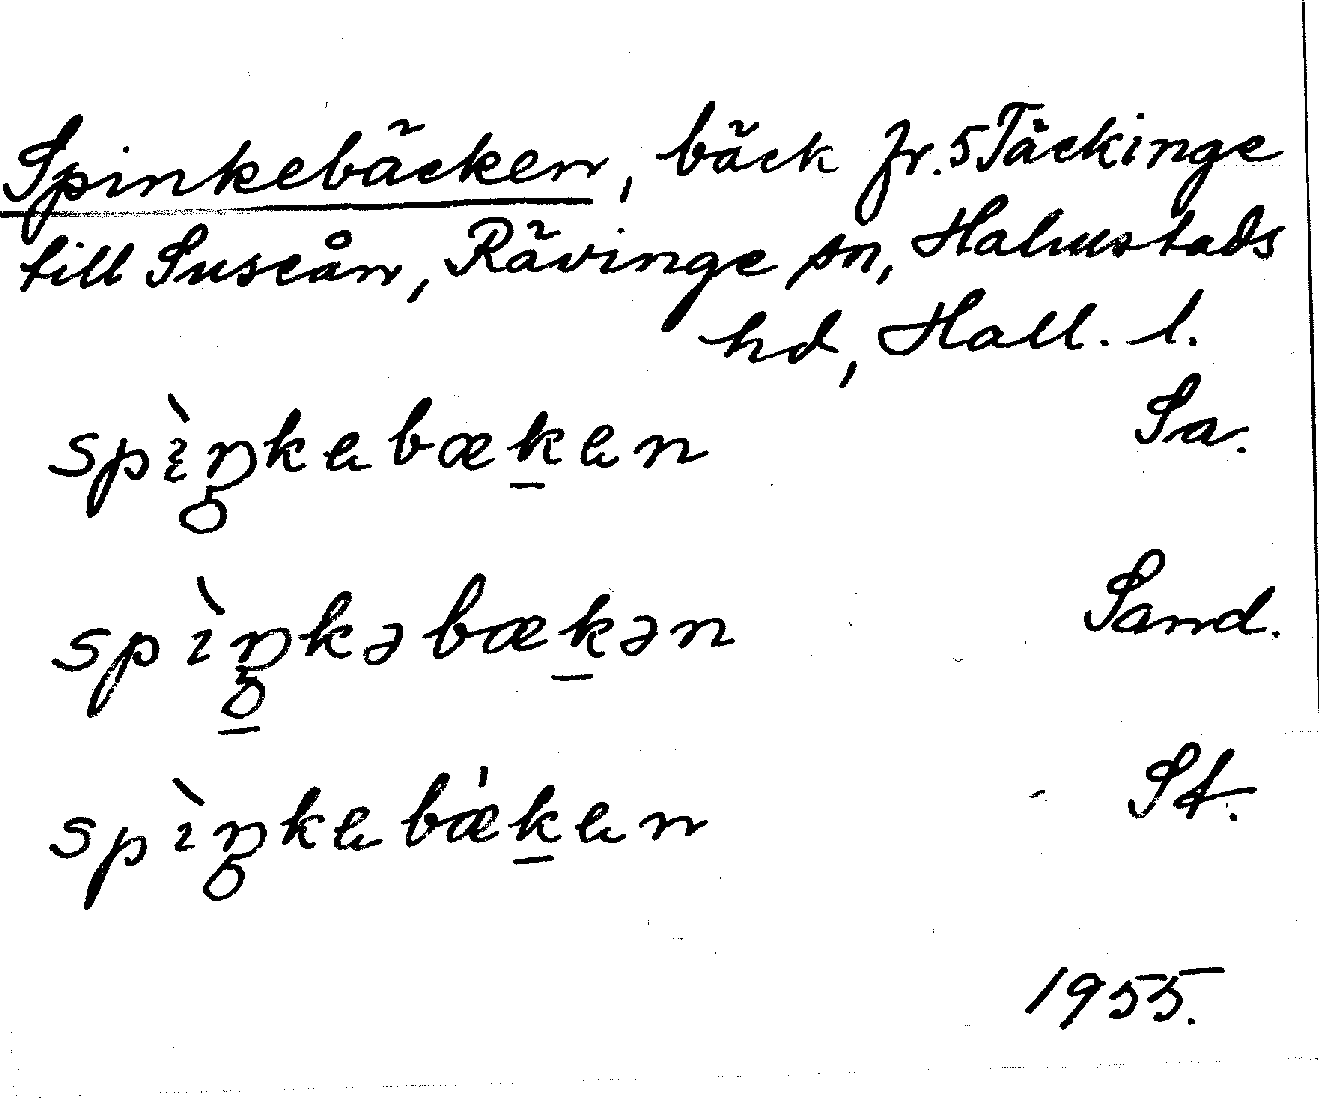 Spinkebäcken, bäck fr. 5 Täckinge
till Suseån, Rävinge sn, Halmstads
hd, Hall. l.
Sa.
Sand.
St.
1955.